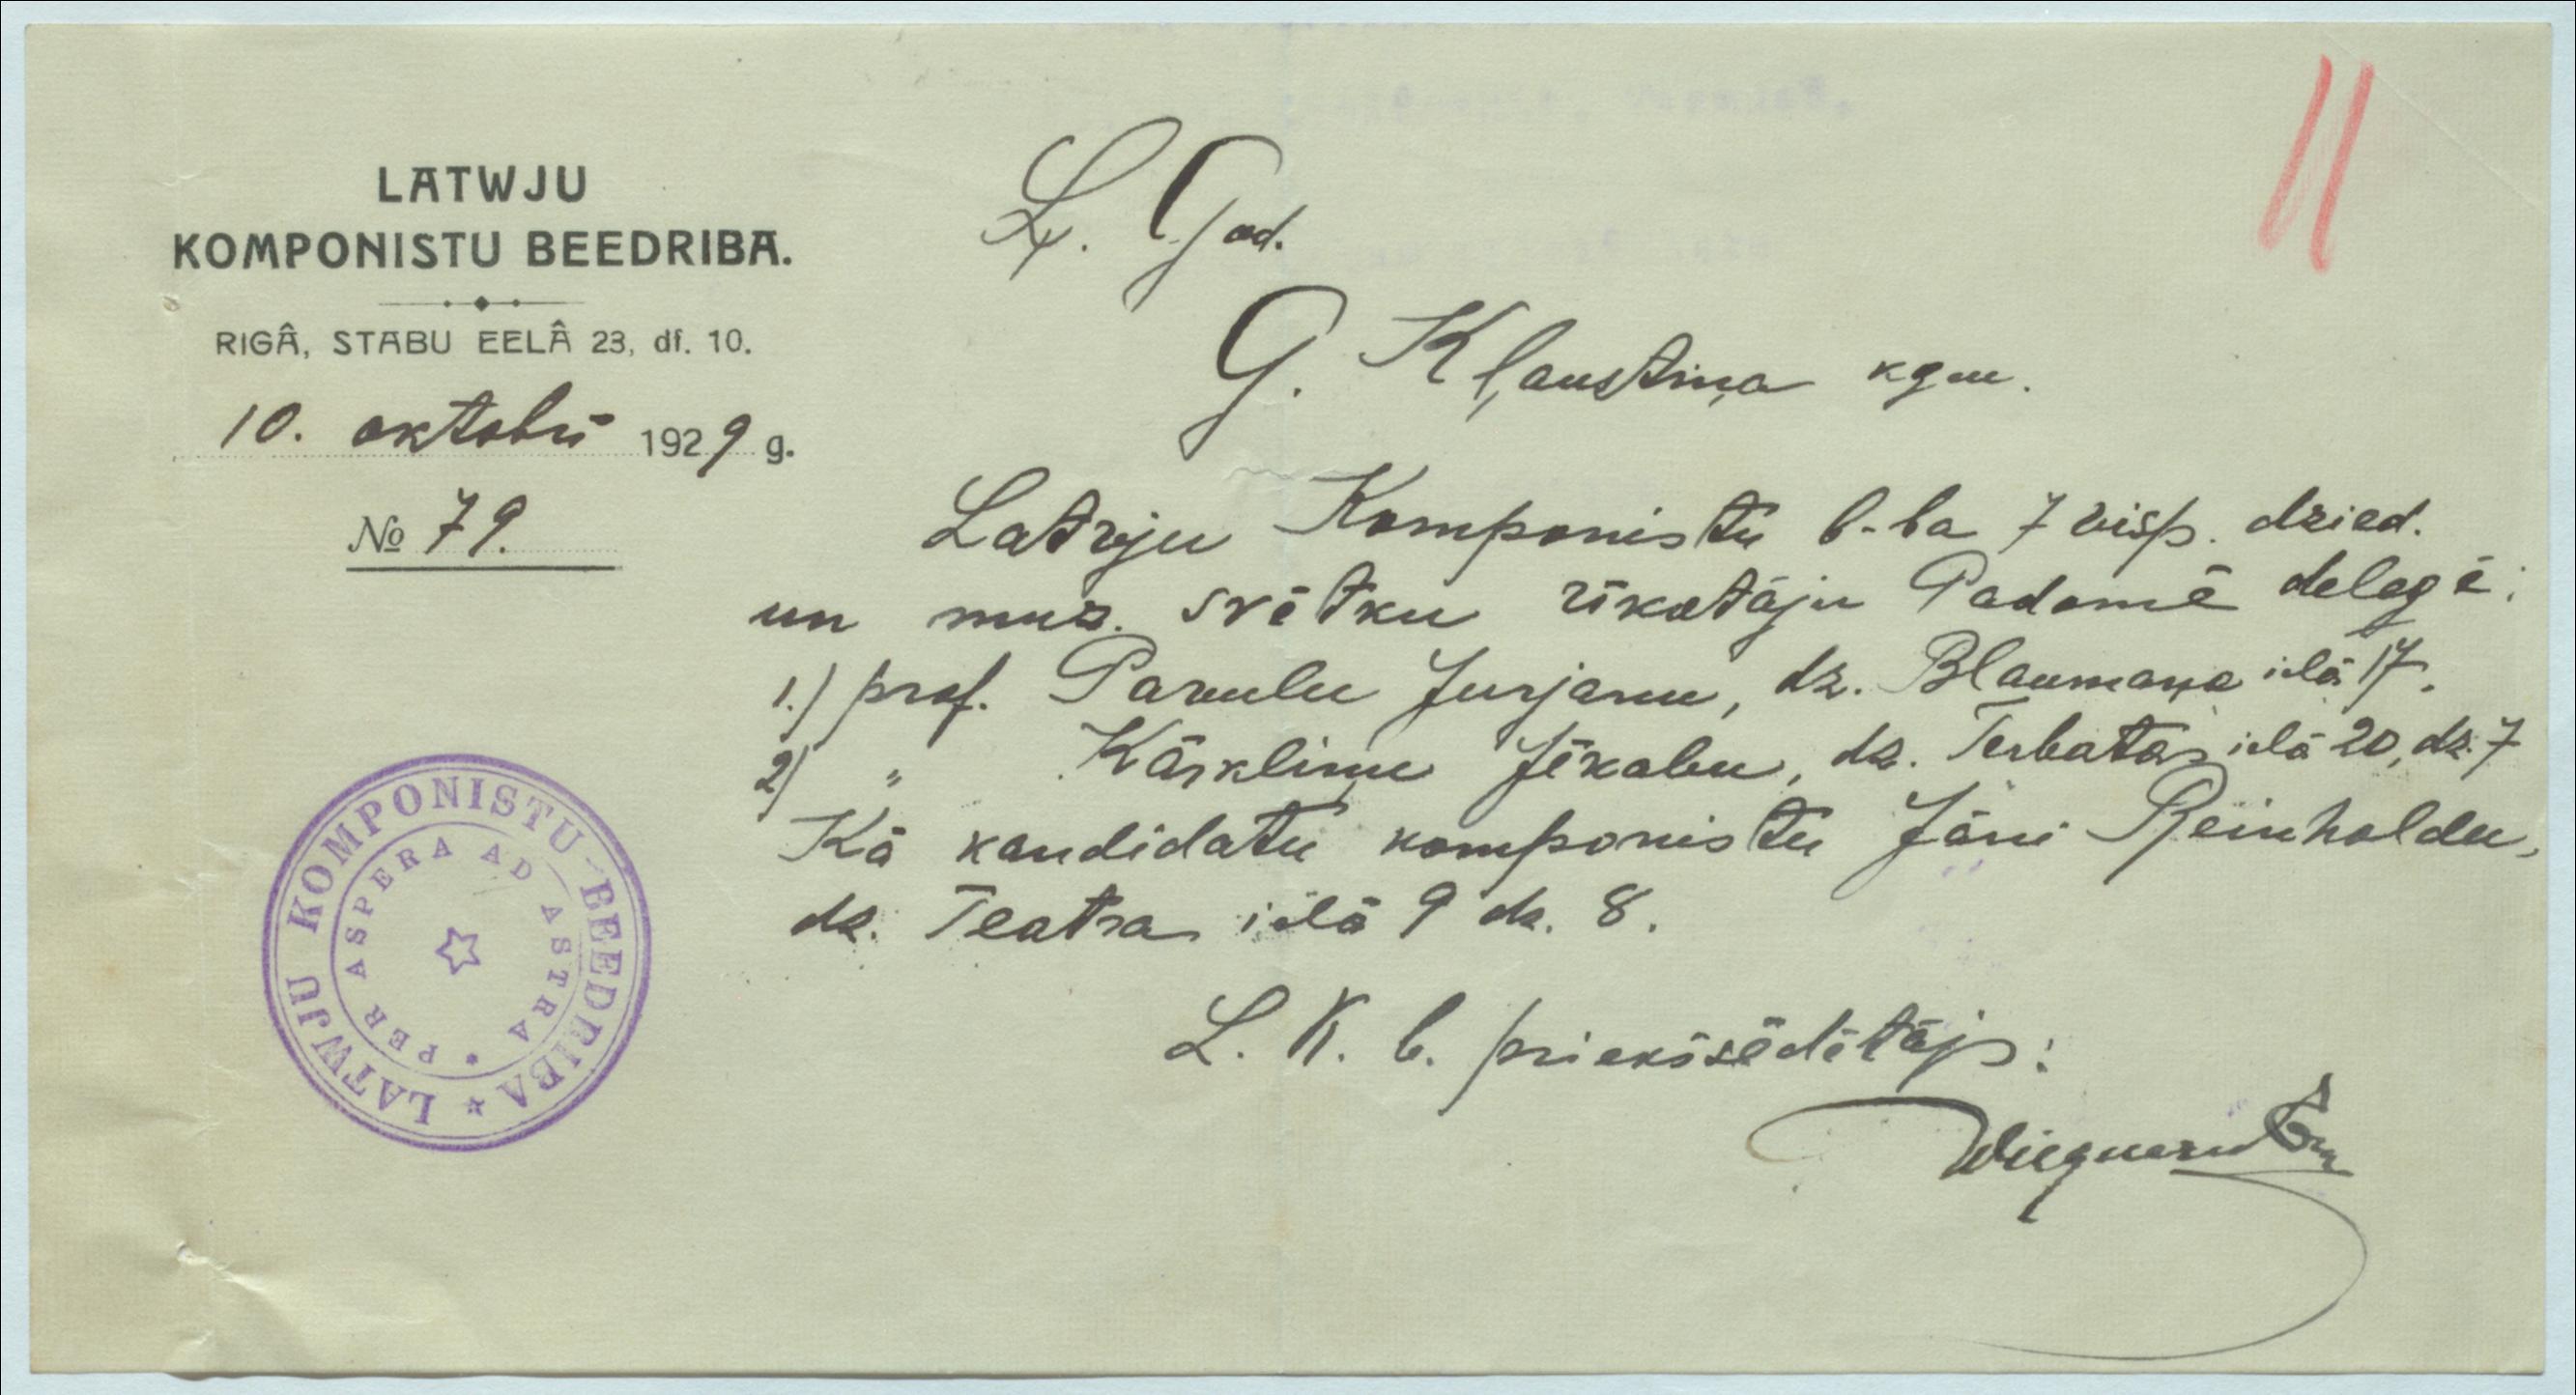 LATWJU
KOMPONISTU BEEDRIBA.
RIGÂ, STABU EELÂ 23, df. 10.
10. oktobrī 1929 g.
№ 79.
11
L. God.
G. Kļaustiņa kgm.
Latvju Komponistu b-ba 7 visp. dzied.
un muz. svētku rīkotāju Padomē delegē:
1.) prof. Pavulu Jurjanu, dz. Blaumaņa ielā 17.
2) " Kārkliņu Jēkabu, dz. Terbatas ielā 20, dz. 7
Kā kandidatu komponistu Jāni Reinholdu,
dz. Teatra ielā 9 dz. 8.
L. K. b. priekšsēdētājs:
LATWJU KOMPONISTU-BEEDRIBA
PER ASPERA AD ASTRA